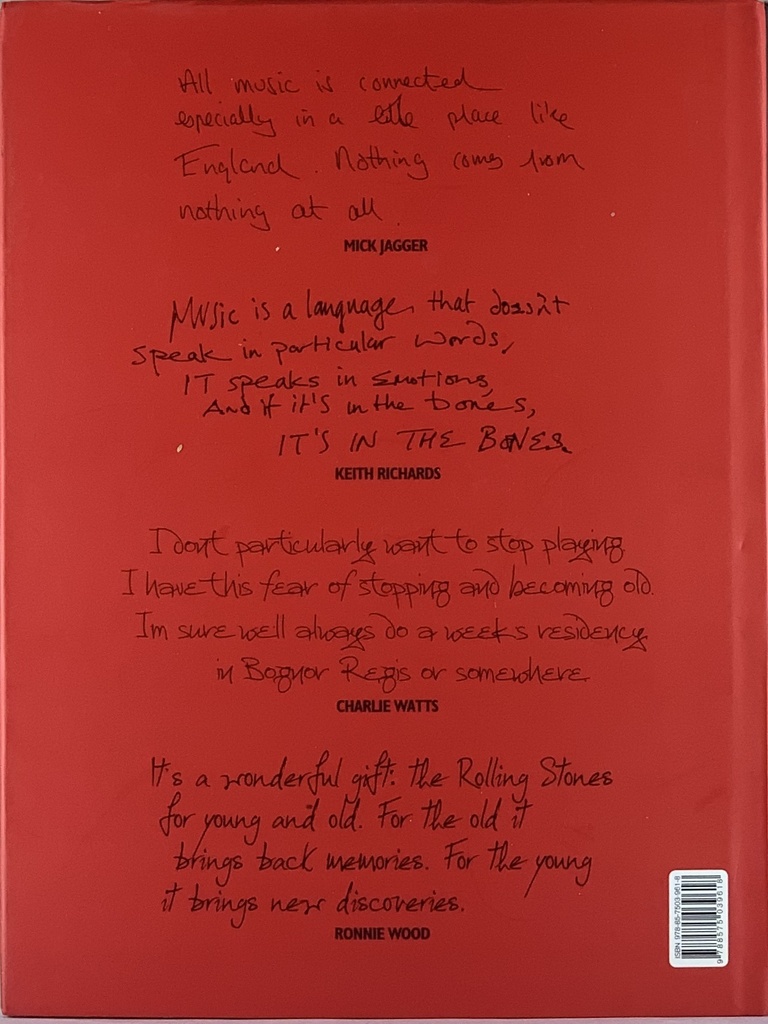 All music is connected
especially in a little place like
England. Nothing comes from
nothing at all.
MICK JAGGER
Music is a language that doesn't
speak in particular words,
IT speaks in Emotions,
And if it's in the bones,
IT'S IN THE BONES.
KEITH RICHARDS
I dont particularly want to stop playing.
I have this fear of stopping and becoming old.
Im sure well always do a weeks residency
in Bognor Regis or somewhere
CHARLIE WATTS
It's a wonderful gift: the Rolling Stones
for young and old. For the old it
brings back memories. For the young
it brings new discoveries.
RONNIE WOOD
ISBN 978-85-7503-961-8
9 788575 039618